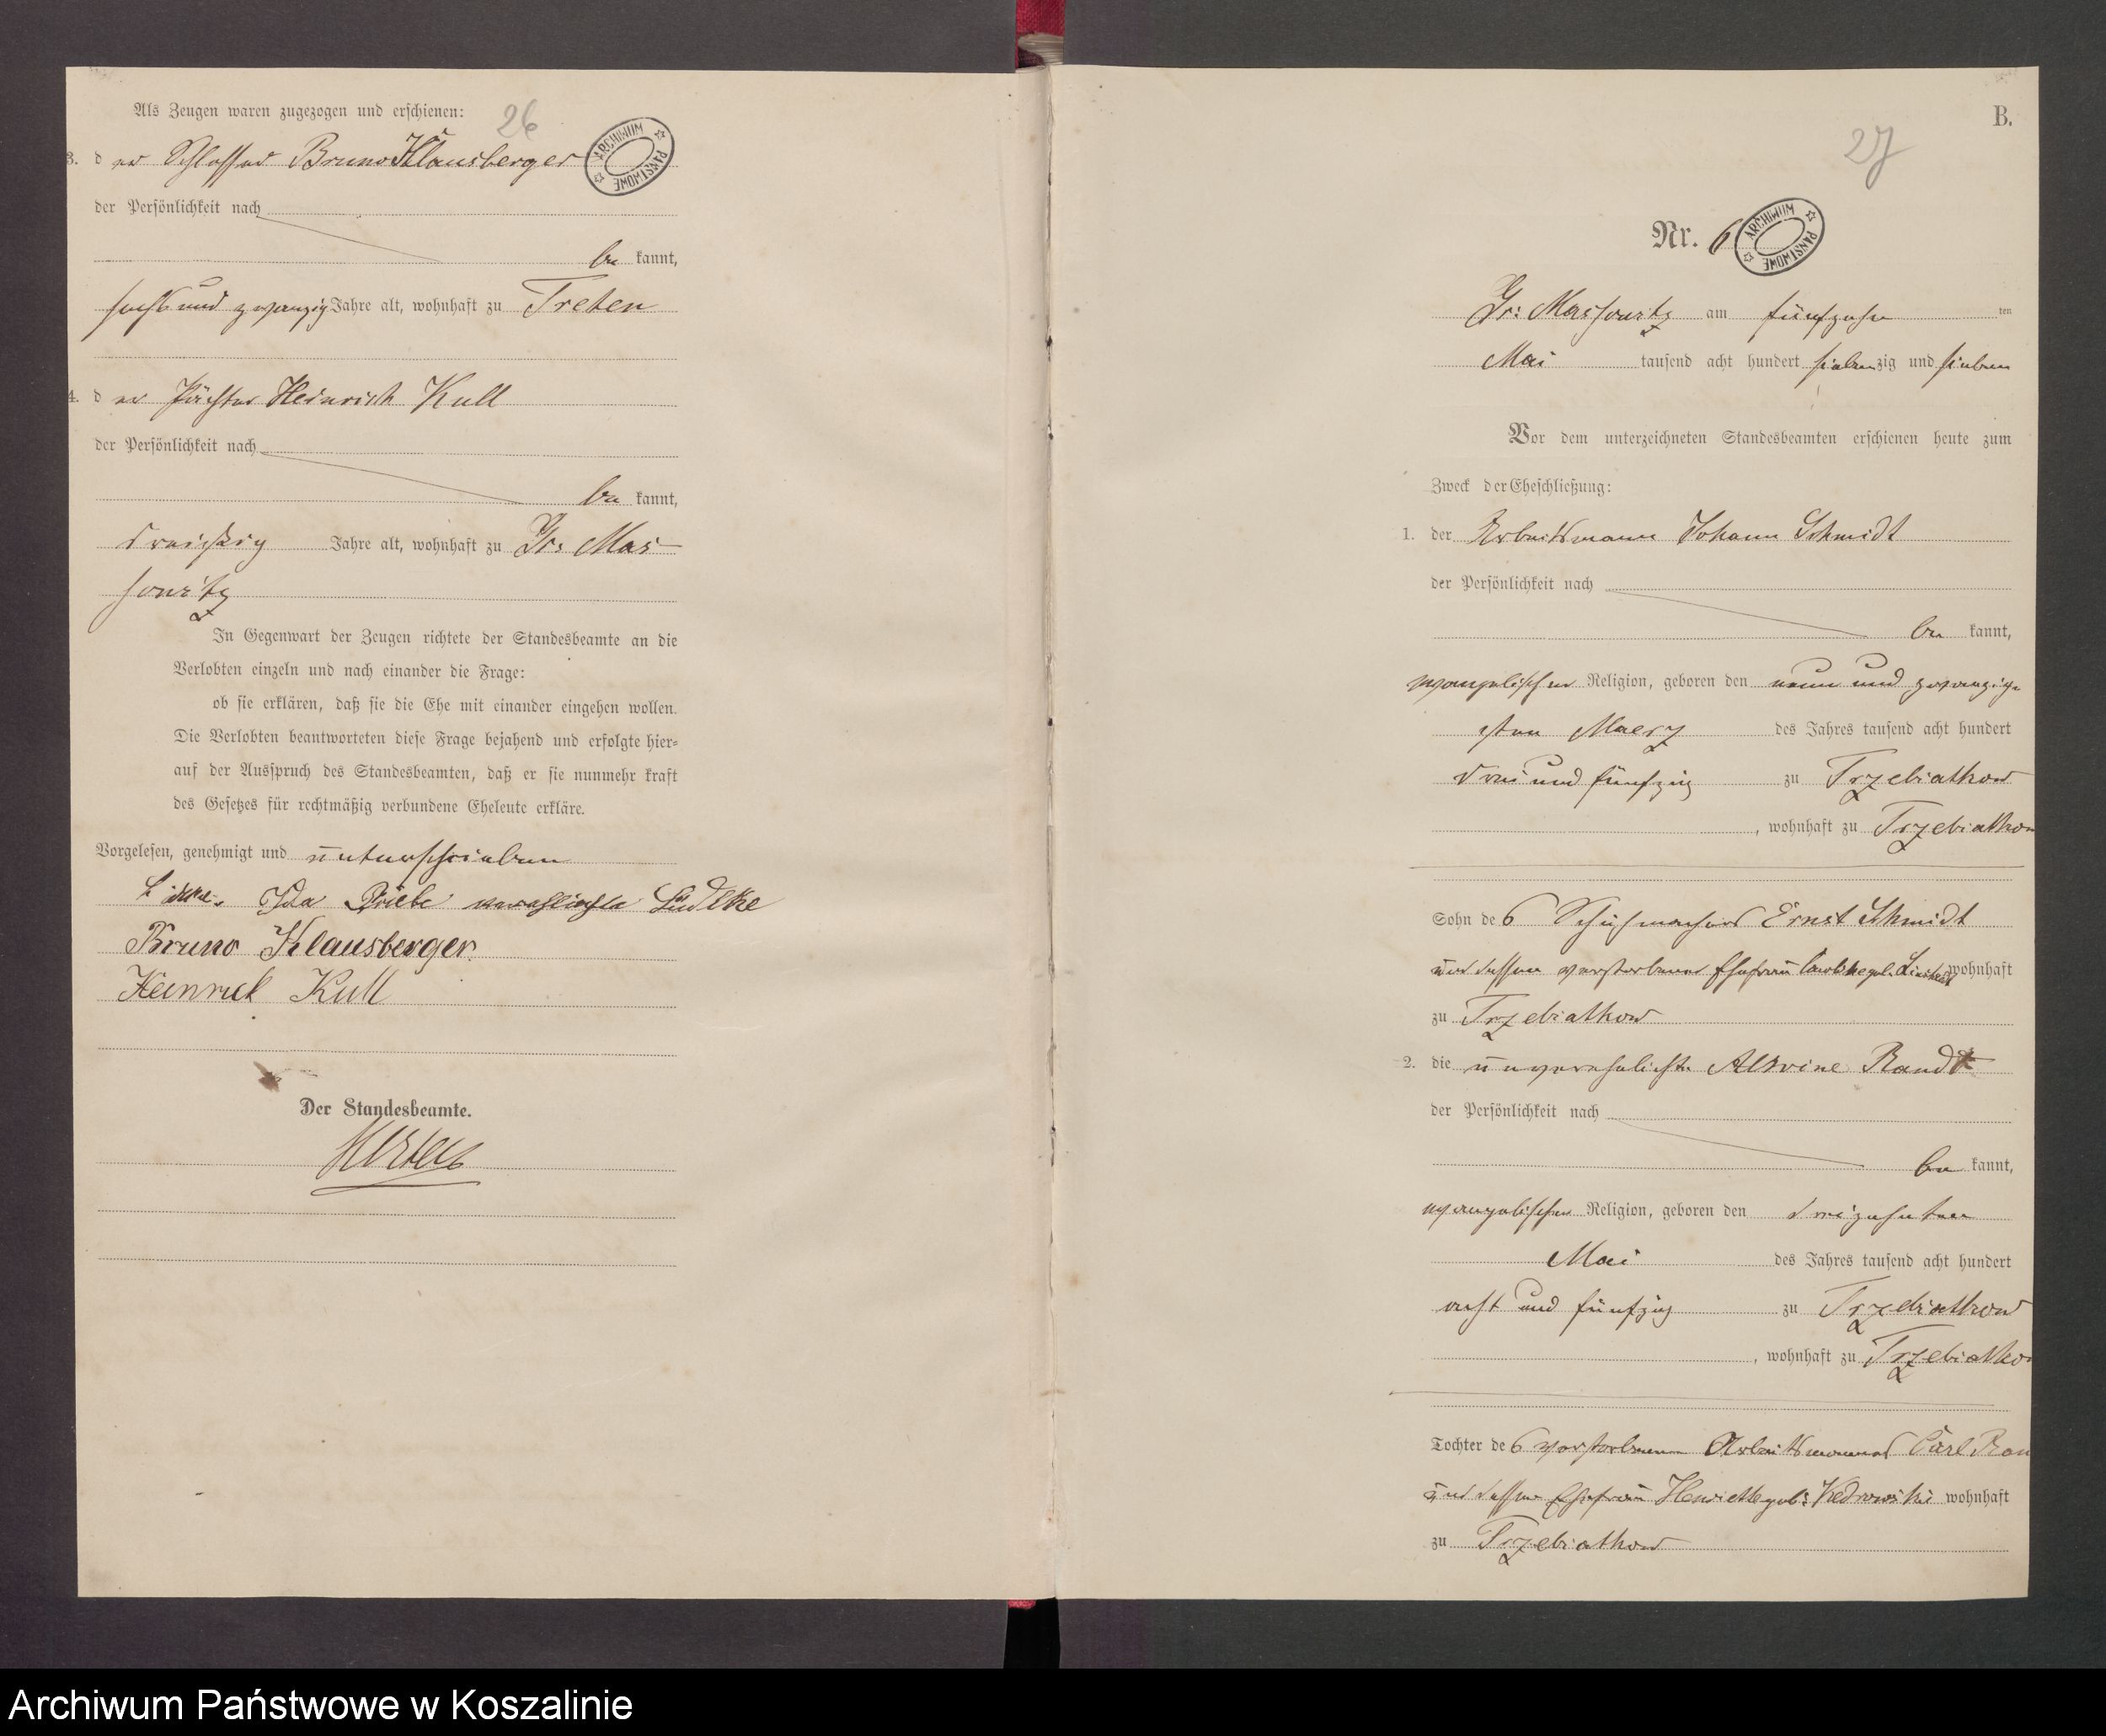 Als Zeugen waren zugezogen und erschienen:
26
ARCHIWUM PAŃSTWOWE
3. der Schlosser Bruno Klausberger
der Persönlichkeit nach
be kannt,
sechs und zwanzig Jahre alt, wohnhaft zu Treten
4. der Pächter Heinrich Kull
der Persönlichkeit nach
be kannt,
dreißig Jahre alt, wohnhaft zu Gr: Mas-
sowitz
In Gegenwart der Zeugen richtete der Standesbeamte an die
Verlobten einzeln und nach einander die Frage:
ob sie erklären, daß sie die Ehe mit einander eingehen wollen.
Die Verlobten beantworteten diese Frage bejahend und erfolgte hier-
auf der Ausspruch des Standesbeamten, daß er sie nunmehr kraft
des Gesetzes für rechtmäßig verbundene Eheleute erkläre.
Vorgelesen, genehmigt und unterschrieben
Ida Priebe verehlichte Lüdtke
Bruno Klausberger
Heinrich Kull
Der Standesbeamte.
B.
27
Nr. 6
ARCHIWUM PAŃSTWOWE
Gr: Massowitz am fünfzehn ten
Mai tausend acht hundert siebenzig und sieben
Vor dem unterzeichneten Standesbeamten erschienen heute zum
Zweck der Eheschließung:
1. der Arbeitsmann Johann Schmidt
der Persönlichkeit nach
be kannt,
evangelischer Religion, geboren den neun und zwanzig
sten Maerz des Jahres tausend acht hundert
drei und fünfzig zu Trzebiatkow
, wohnhaft zu Trzebiatkow
Sohn des Schuhmachers Ernst Schmidt
und dessen verstorbener Ehefrau geb. wohnhaft
zu Trzebiatkow
2. die unverehelichte Alwine Randt
der Persönlichkeit nach
be kannt,
evangelischer Religion, geboren den dreizehnten
Mai des Jahres tausend acht hundert
acht und fünfzig zu Trzebiatkow
, wohnhaft zu Trzebiatkow
Tochter des verstorbenen Arbeitsmannes Carl Ran
und dessen Ehefrau Henriette geb: Kedrowski wohnhaft
zu Trzebiatkow
Archiwum Państwowe w Koszalinie